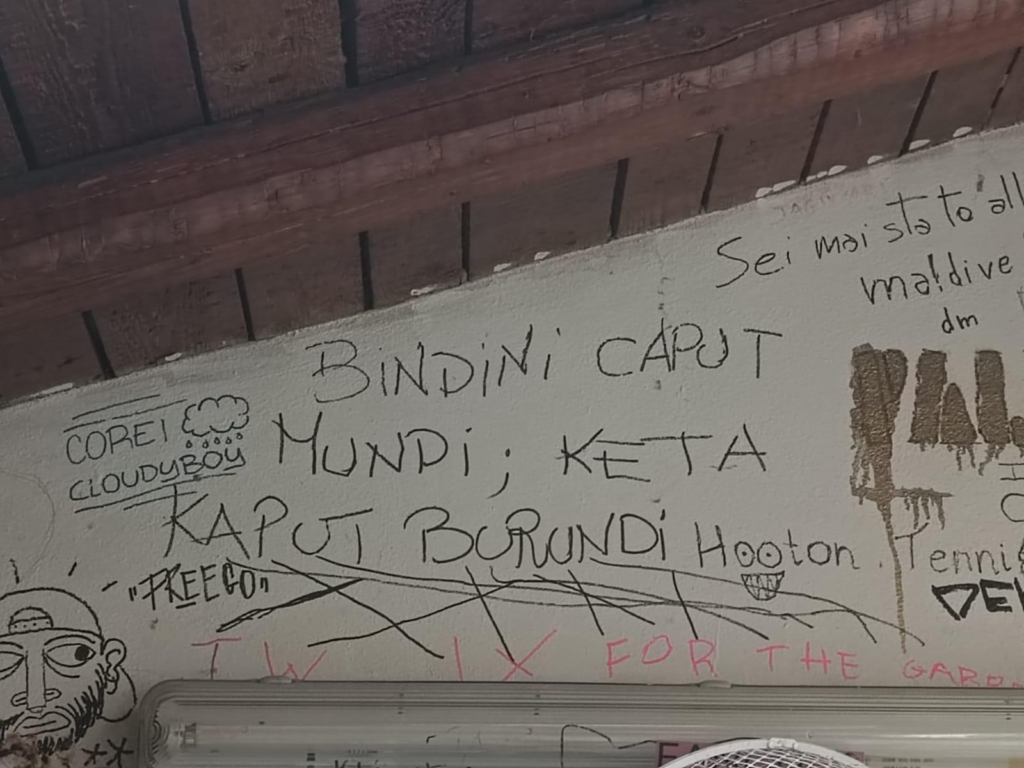 Sei mai stato all
maldive
dm
BINDINI CAPUT
MUNDI; KETA
KAPUT BURUNDI
COREI
CLOUDYBOY
"PREEGO"
Hooton. Tennis
DEN
TW IX FOR THE GARD